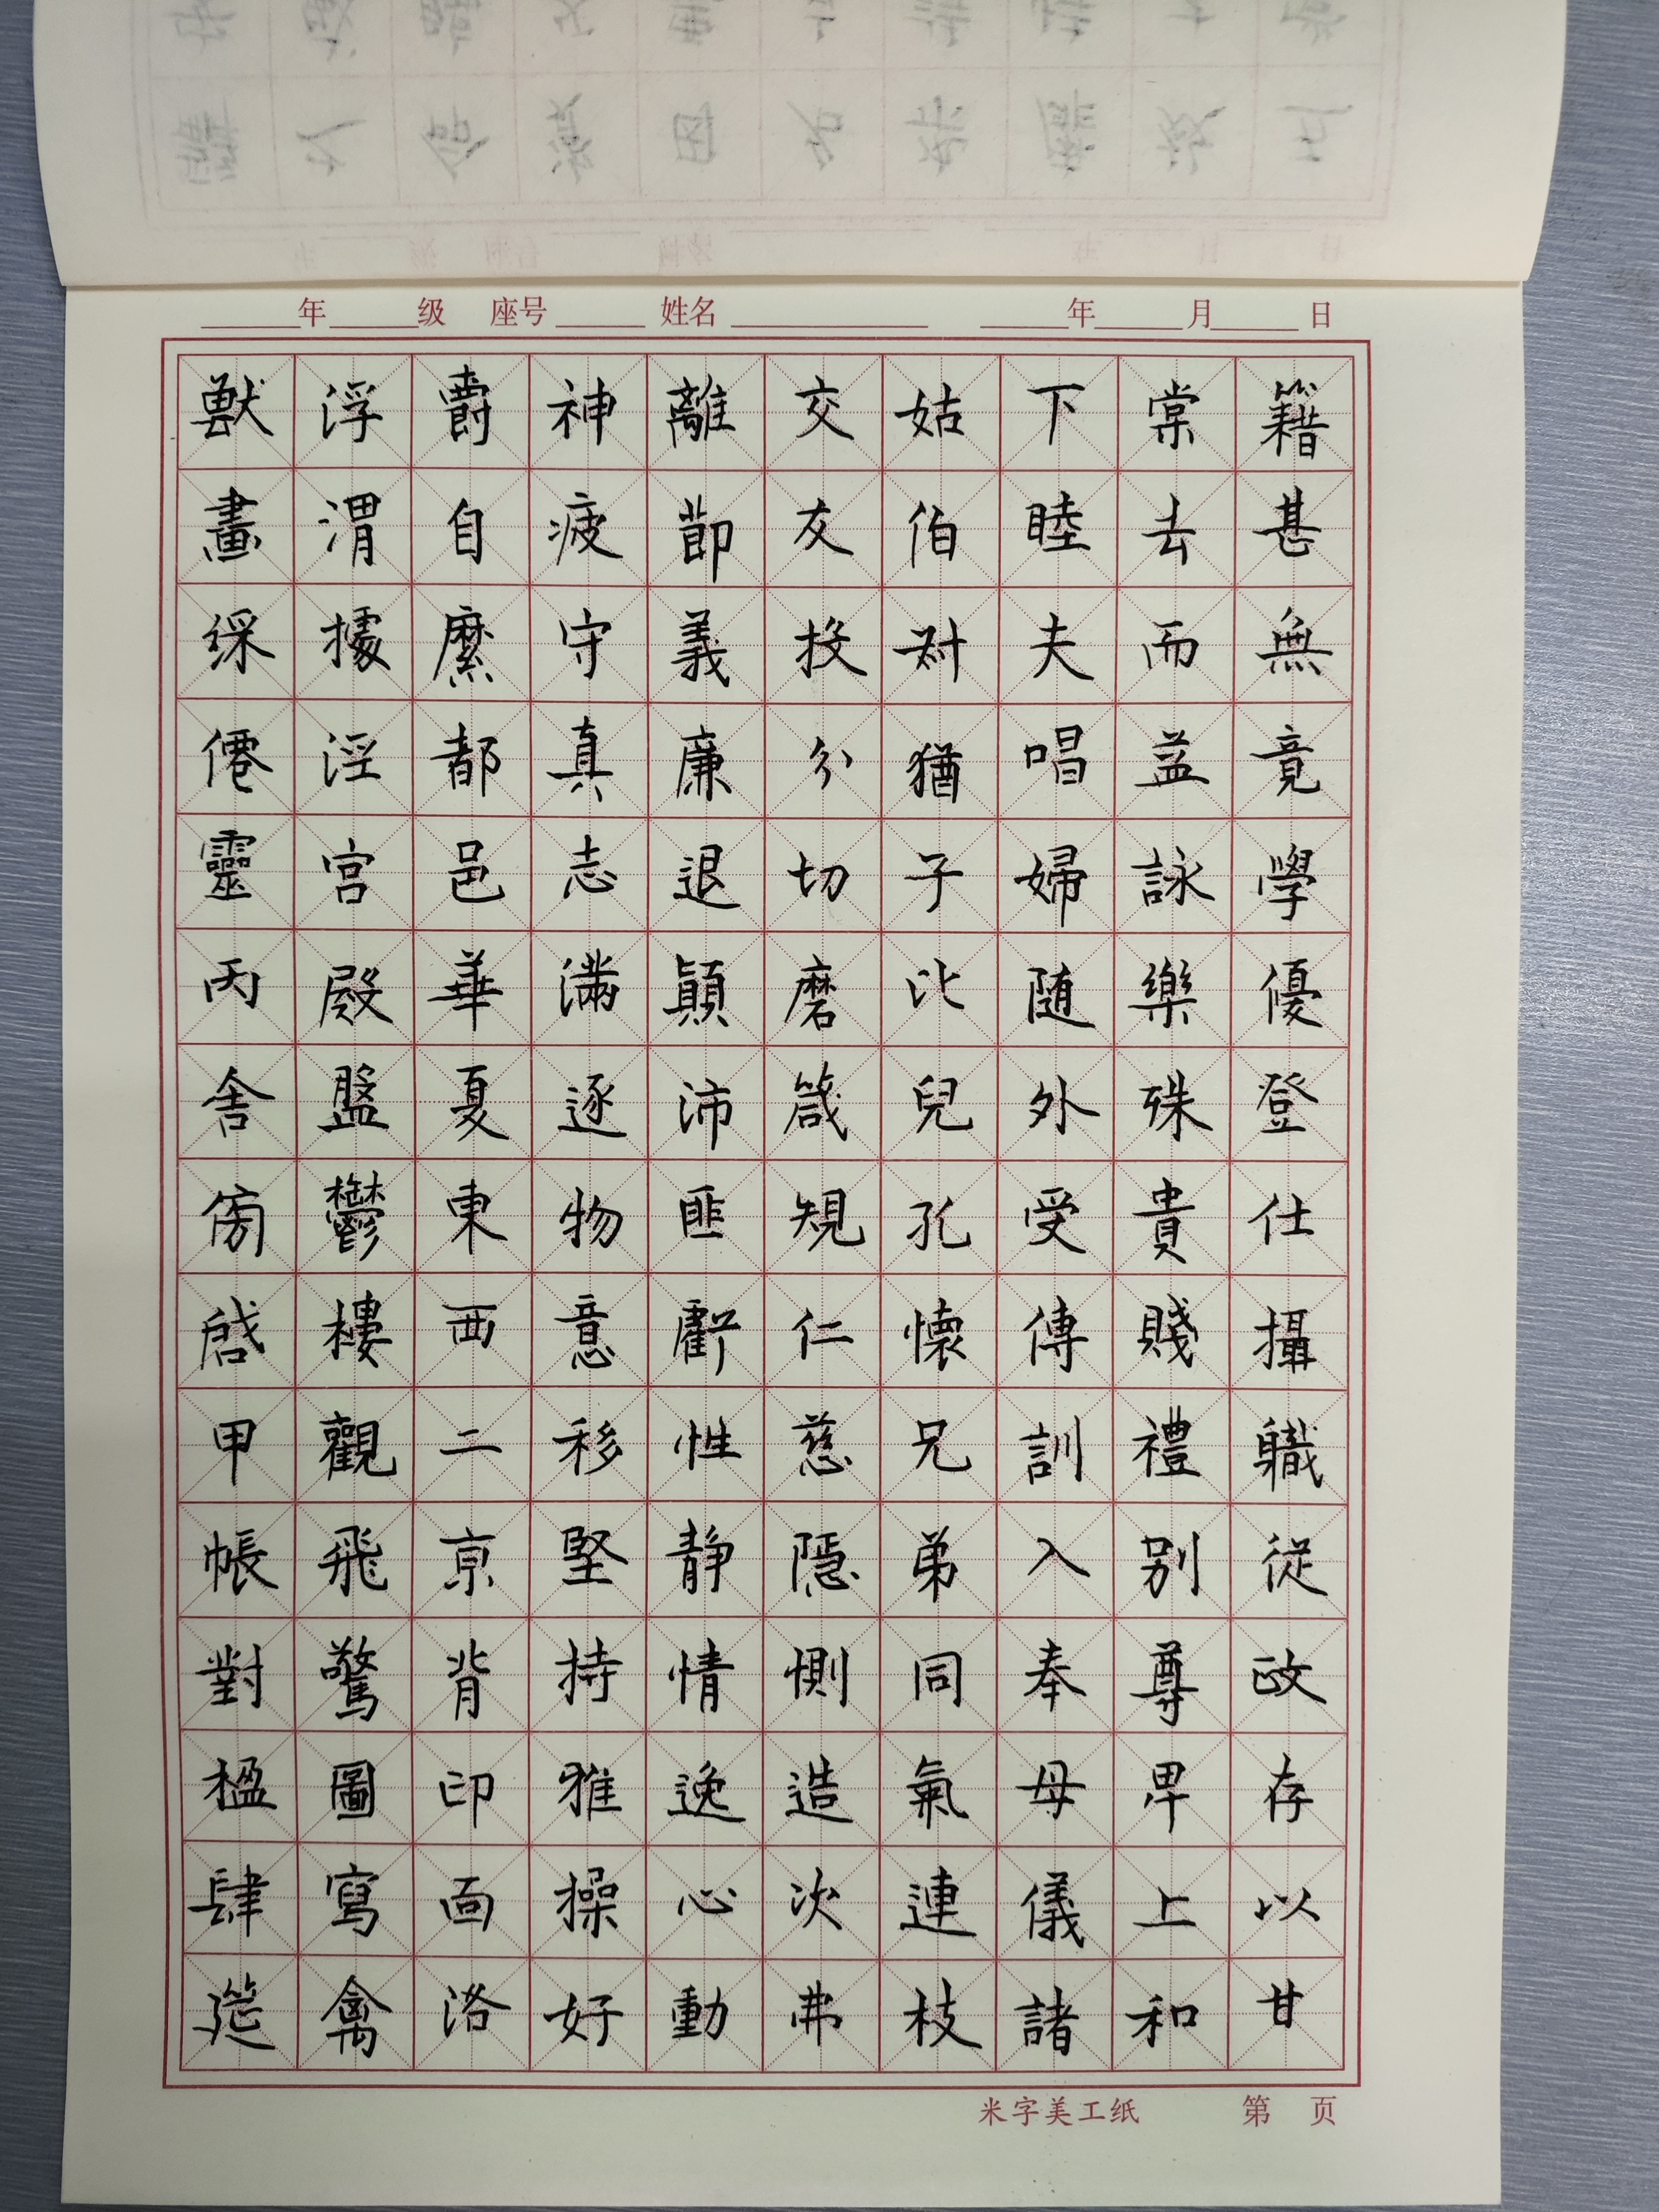 年 级 座号 姓名 年 月 日
籍甚無竟學優登仕攝職從政存以甘
棠去而益詠樂殊貴賤禮别尊卑上和
下睦夫唱婦随外受傳訓入奉母儀諸
姑伯叔猶子比兒孔懷兄弟同氣連枝
交友投分切磨箴規仁慈隱惻造次弗
離節義廉退顛沛匪虧性静情逸心動
神疲守真志滿逐物意移堅持雅操好
爵自縻都邑華夏東西二京背邙面洛
浮渭據涇宫殿盤鬱樓觀飛驚圖寫禽
獸畫綵僊靈丙舍傍啓甲帳對楹肆筵
米字美工纸 第 页